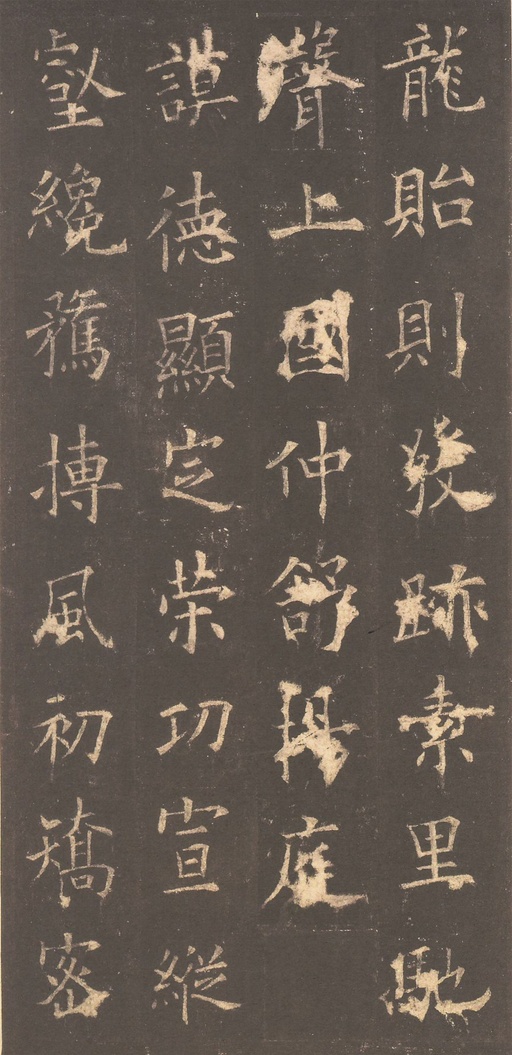 龍貽則發跡素里馳
聲上國仲舒庭
謨德顯定榮功宣縱
壑纔騖搏風初矯密